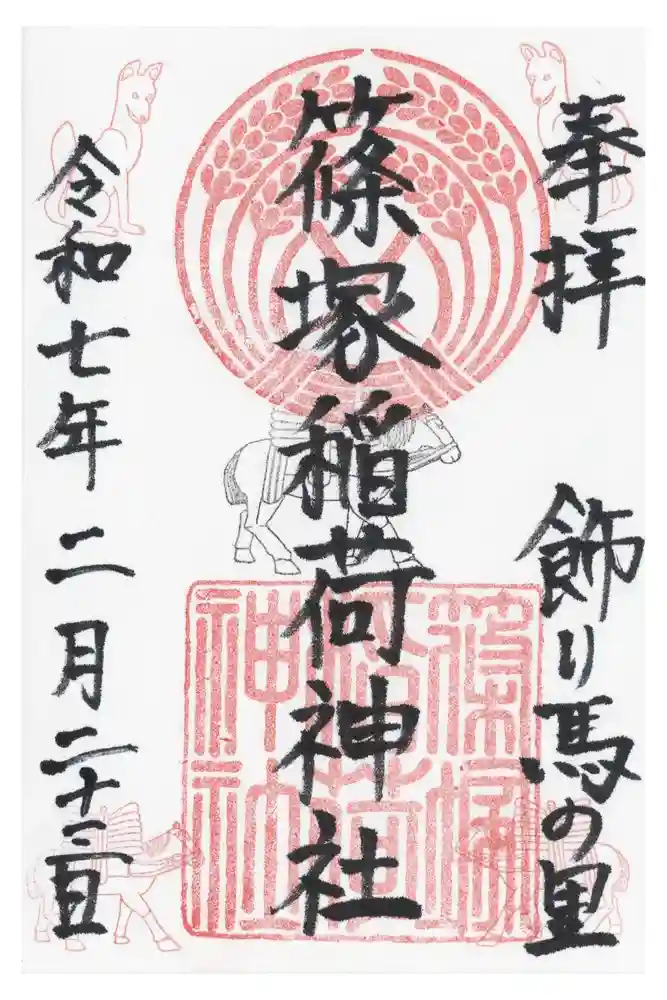 奉拝 飾り馬の里
篠塚稲荷神社
令和七年二月二十三日
篠塚
稲荷
神社